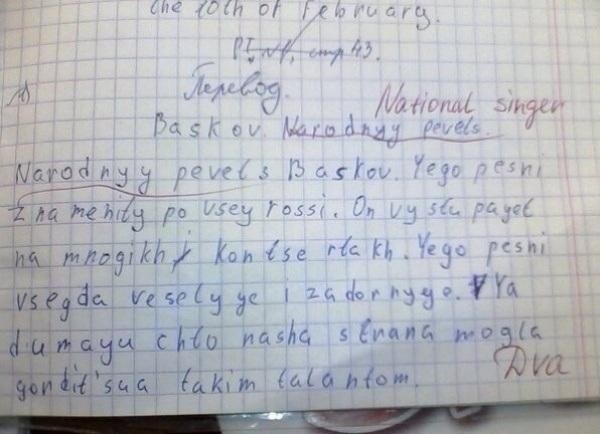 the 10th of February.
P I, №1, стр 43.
Перевод.
National singer
Baskov. Narodnyy pevets.
Narodnyy pevets Baskov. Yego pesni
znamenity po vsey rossi. On vystupayet
na mnogikh kontsertakh. Yego pesni
vsegda veselyye i zadornyye. Ya
dumayu chto nasha strana mogla
gordit'sua takim talantom.
Dva